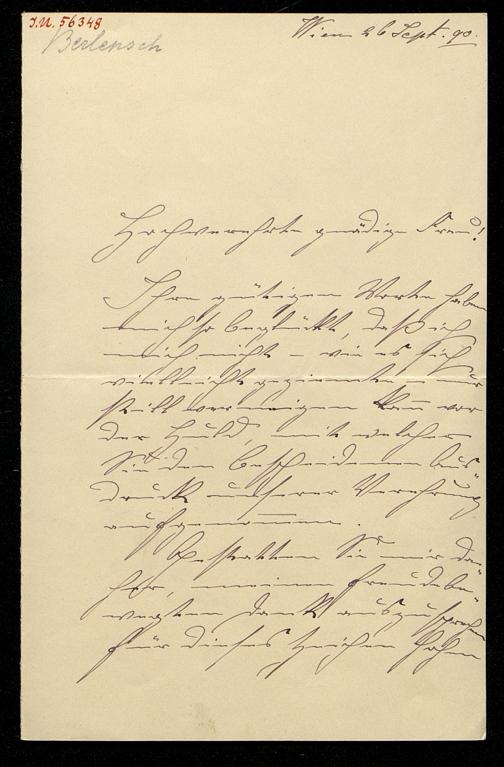 J.N. 56348
Berlepsch
Wien 26 Sept. 90.
Hochverehrte gnädige Frau!
Ihre gütigen Worte haben
mich so beglückt, daß ich
mich nicht – wie es sich
vielleicht geziemte – nur
still verneigen kann vor
der Huld, mit welcher
Sie den bescheidenen Aus-
druck unserer Verehrung
aufgenommen.
Gestatten Sie mir da-
her, meinen freudebe-
wegten Dank auszusprechen
für dieses Zeichen hohen